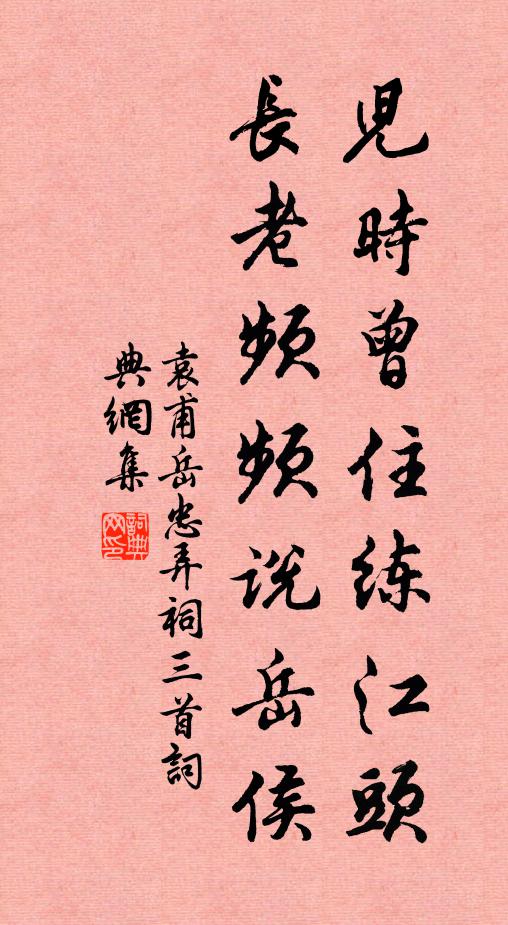 兒時曾住練江頭
長老頻頻說岳侯
袁甫岳忠弄祠三首詞
典網集
詞典網印